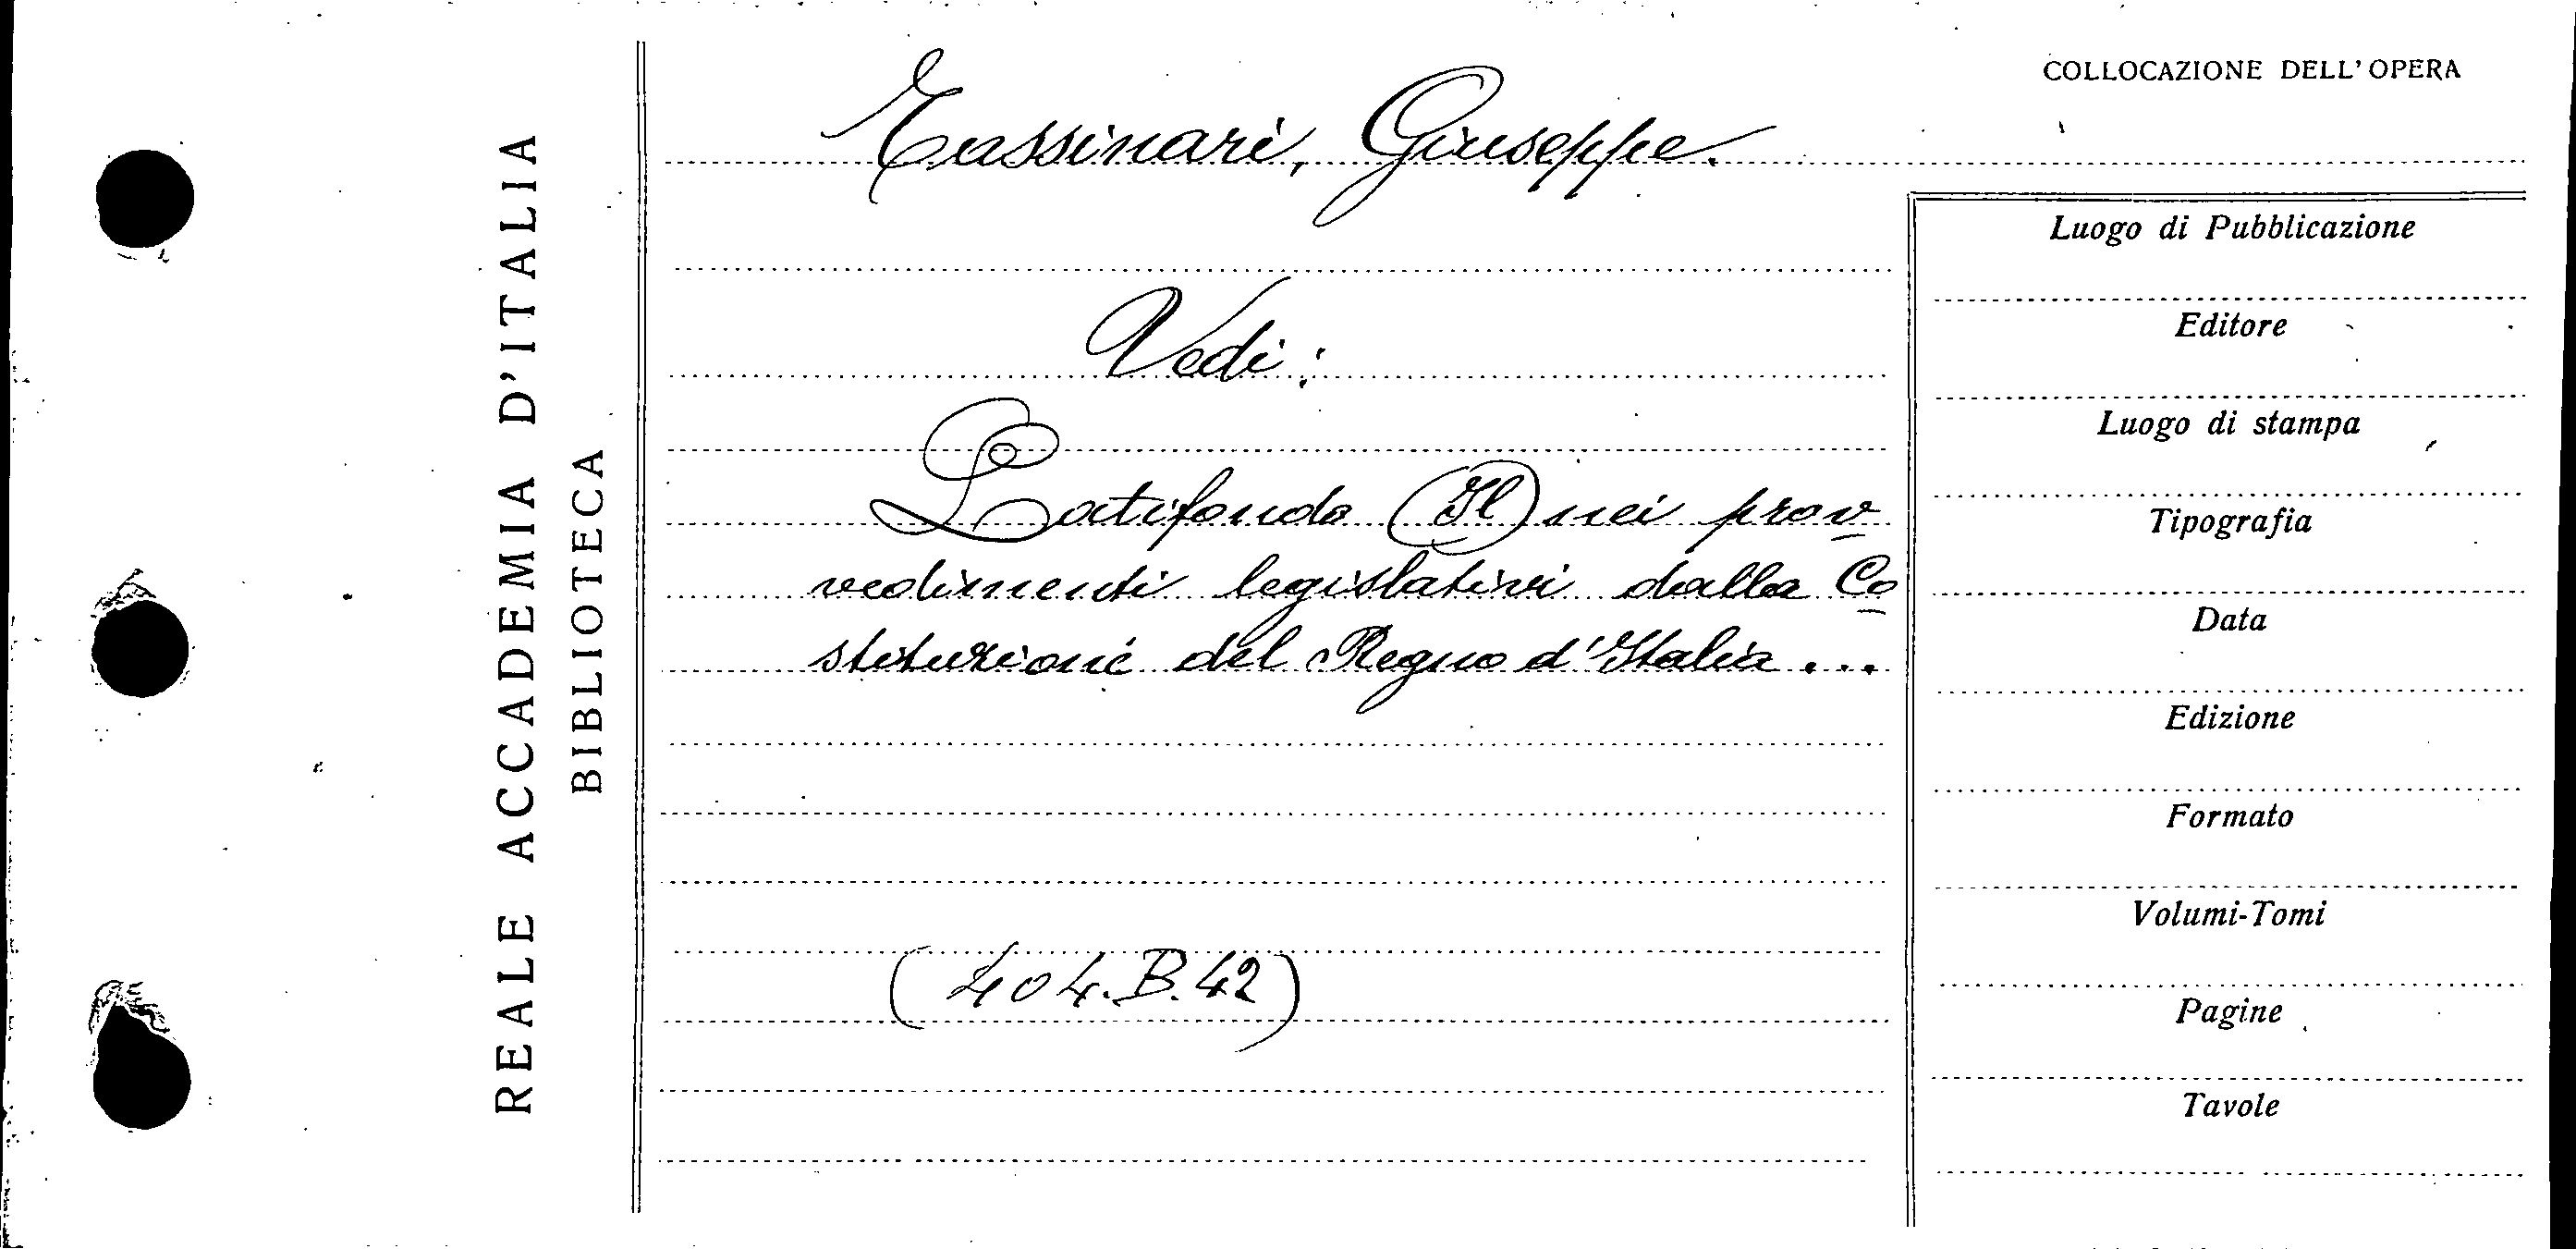 REALE ACCADEMIA D'ITALIA
BIBLIOTECA
COLLOCAZIONE DELL'OPERA
Tassinari, Giuseppe.
Vedi:
Latifondo (Il) nei prov
vedimenti legislativi dalla Co
stituzione del Regno d'Italia...
(404.B.42)
Luogo di Pubblicazione
Editore
Luogo di stampa
Tipografia
Data
Edizione
Formato
Volumi-Tomi
Pagine
Tavole